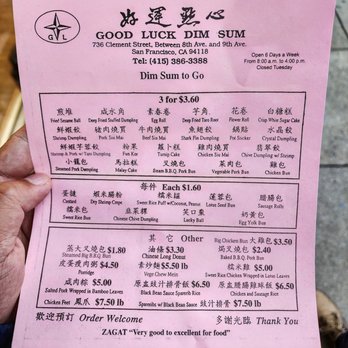 好運點心
GVL
GOOD LUCK DIM SUM
736 Clement Street, Between 8th Ave. and 9th Ave.
San Francisco, CA 94118
Tel: (415) 386-3388
Open 6 Days a Week
From 8:00 a.m. to 4:00 p.m.
Closed Tuesday
Dim Sum to Go
3 for $3.60
煎堆 咸水角 素春卷 芋角 花卷 白糖糕
Fried Sesame Ball Deep Fried Stuffed Dumpling Egg Roll Deep Fried Taro Root Flower Roll Crisp White Sugar Cake
鮮蝦餃 豬肉燒賣 牛肉燒賣 魚翅餃 鍋貼 水晶餃
Shrimp Dumpling Pork Siu Mai Beef Siu Mai Shark Fin Dumpling Pot Sticker Crystal Dumpling
鮮蝦芋蓉餃 粉果 蘿蔔糕 雞肉燒賣 翡翠餃
Shrimp & Pork w/ Taro Dumpling Fun Kor Turnip Cake Chicken Siu Mai Chive Dumpling w/ Shrimp
小籠包 馬拉糕 叉燒包 菜肉包 雞包
Steamed Pork Dumpling Malay Cake Steam B.B.Q. Pork Bun Vegetable Pork Bun Chicken Bun
每件 Each $1.60
蛋撻 蝦米腸粉 糯米糍 蓮蓉包 腊腸包
Custard Dry Shrimp Crepe Sweet Rice Puff w/Coconut, Peanut Lotus Seed Bun Sausage Rolls
糯米包 韭菜粿 笑口棗 奶黃包
Sweet Rice Bun Chinese Chive Dumpling Lucky Ball Egg Yolk Bun
其它 Other
蒸大叉燒包 $1.80 油條 $3.30 Big Chicken Bun 大雞包 $3.50
Steamed B.B.Q. Pork Bun Chinese Long Donut 焗叉燒包 $2.40
皮蛋瘦肉粥 $4.50 素炒麵 $5.50 lb Baked B.B.Q. Pork Bun
Porridge Vege Chow Mein 糯米雞 $5.00
咸肉粽 $5.00 原盅豉汁排骨飯 $6.50 Sweet Rice Chicken Wrapped in Lotus Leaves
Salted Pork Wrapped in Bamboo Leaves Black Bean Sauce Sparerib Rice 原盅臘腸雞球飯 $6.50
Chicken Feet 鳳爪 $7.50 lb Spareribs w/ Black Bean Sauce 豉汁排骨 $7.50 lb Chicken and Sausage Rice
歡迎預訂 Order Welcome 多謝光臨 Thank You
ZAGAT "Very good to excellent for food"